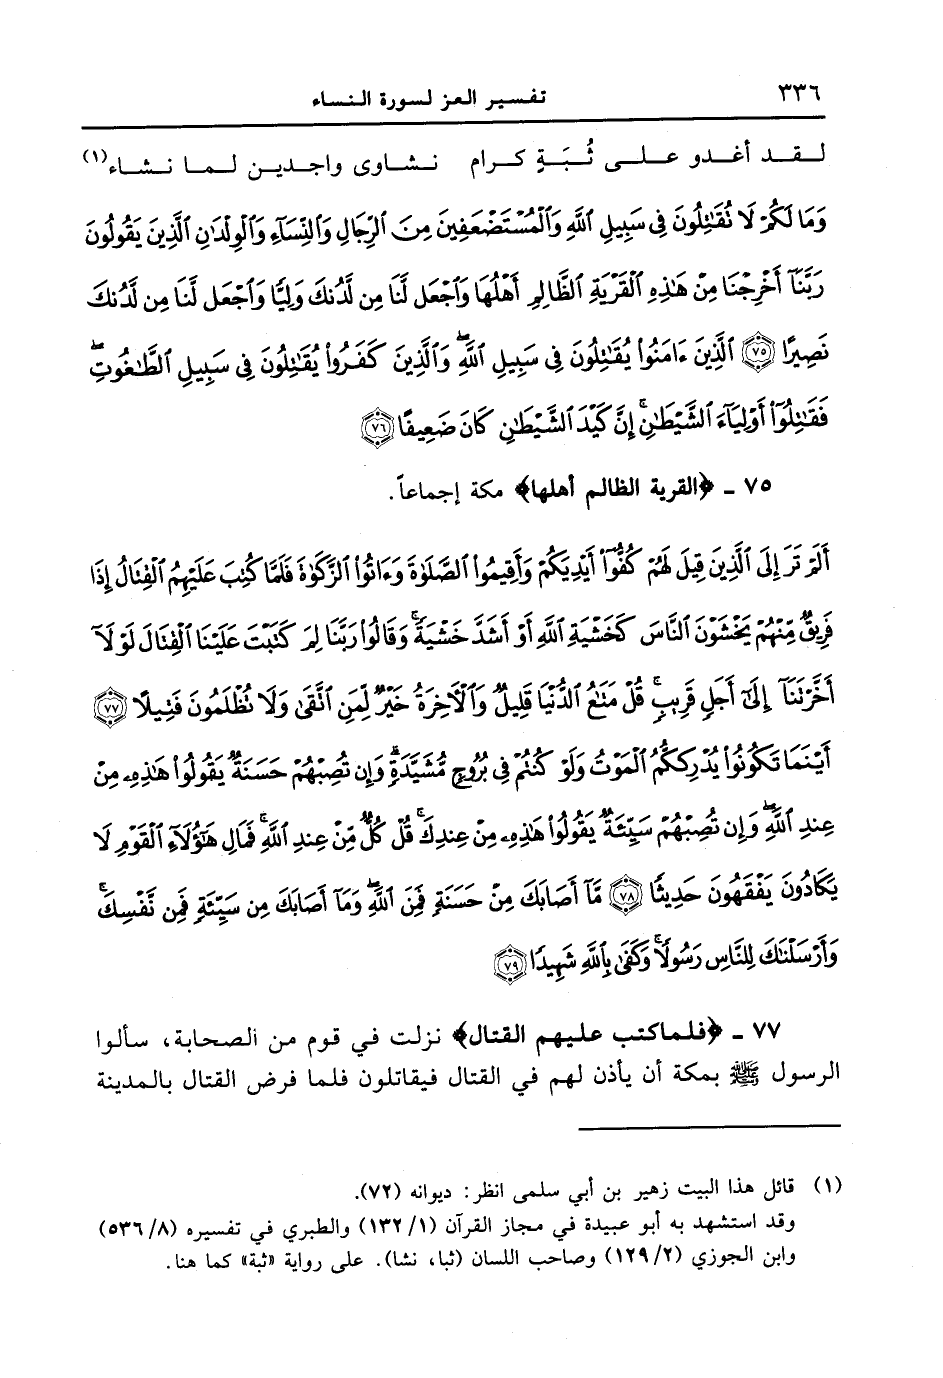 ٣٣٦
تفسير العز لسورة النساء
لقد أغدو على ثُبَةٍ كرام نشاوى واجدين لما نشاء(١)
وَمَا لَكُمْ لَا تُقَٰتِلُونَ فِى سَبِيلِ ٱللَّهِ وَٱلْمُسْتَضْعَفِينَ مِنَ ٱلرِّجَالِ وَٱلنِّسَآءِ وَٱلْوِلْدَٰنِ ٱلَّذِينَ يَقُولُونَ
رَبَّنَآ أَخْرِجْنَا مِنْ هَٰذِهِ ٱلْقَرْيَةِ ٱلظَّالِمِ أَهْلُهَا وَٱجْعَل لَّنَا مِن لَّدُنكَ وَلِيًّا وَٱجْعَل لَّنَا مِن لَّدُنكَ
نَصِيرًا ٧٥ ٱلَّذِينَ ءَامَنُوا۟ يُقَٰتِلُونَ فِى سَبِيلِ ٱللَّهِ ۖ وَٱلَّذِينَ كَفَرُوا۟ يُقَٰتِلُونَ فِى سَبِيلِ ٱلطَّٰغُوتِ ۖ
فَقَٰتِلُوٓا۟ أَوْلِيَآءَ ٱلشَّيْطَٰنِ ۖ إِنَّ كَيْدَ ٱلشَّيْطَٰنِ كَانَ ضَعِيفًا ٧٦
٧٥ ـ ﴿القرية الظالم أهلها﴾ مكة إجماعاً.
أَلَمْ تَرَ إِلَى ٱلَّذِينَ قِيلَ لَهُمْ كُفُّوٓا۟ أَيْدِيَكُمْ وَأَقِيمُوا۟ ٱلصَّلَوٰةَ وَءَاتُوا۟ ٱلزَّكَوٰةَ فَلَمَّا كُتِبَ عَلَيْهِمُ ٱلْقِتَالُ إِذَا
فَرِيقٌ مِّنْهُمْ يَخْشَوْنَ ٱلنَّاسَ كَخَشْيَةِ ٱللَّهِ أَوْ أَشَدَّ خَشْيَةً ۚ وَقَالُوا۟ رَبَّنَا لِمَ كَتَبْتَ عَلَيْنَا ٱلْقِتَالَ لَوْلَآ
أَخَّرْتَنَآ إِلَىٰٓ أَجَلٍ قَرِيبٍ ۗ قُلْ مَتَٰعُ ٱلدُّنْيَا قَلِيلٌ وَٱلْءَاخِرَةُ خَيْرٌ لِّمَنِ ٱتَّقَىٰ وَلَا تُظْلَمُونَ فَتِيلًا ٧٧
أَيْنَمَا تَكُونُوا۟ يُدْرِككُّمُ ٱلْمَوْتُ وَلَوْ كُنتُمْ فِى بُرُوجٍ مُّشَيَّدَةٍ ۗ وَإِن تُصِبْهُمْ حَسَنَةٌ يَقُولُوا۟ هَٰذِهِۦ مِنْ
عِندِ ٱللَّهِ ۖ وَإِن تُصِبْهُمْ سَيِّئَةٌ يَقُولُوا۟ هَٰذِهِۦ مِنْ عِندِكَ ۚ قُلْ كُلٌّ مِّنْ عِندِ ٱللَّهِ ۖ فَمَالِ هَٰٓؤُلَآءِ ٱلْقَوْمِ لَا
يَكَادُونَ يَفْقَهُونَ حَدِيثًا ٧٨ مَّآ أَصَابَكَ مِنْ حَسَنَةٍ فَمِنَ ٱللَّهِ ۖ وَمَآ أَصَابَكَ مِن سَيِّئَةٍ فَمِن نَّفْسِكَ ۚ
وَأَرْسَلْنَٰكَ لِلنَّاسِ رَسُولًا ۚ وَكَفَىٰ بِٱللَّهِ شَهِيدًا ٧٩
٧٧ ـ ﴿فلماكتب عليهم القتال﴾ نزلت في قوم من الصحابة، سألوا
الرسول ﷺ بمكة أن يأذن لهم في القتال فيقاتلون فلما فرض القتال بالمدينة
(١) قائل هذا البيت زهير بن أبي سلمى انظر: ديوانه (٧٢).
وقد استشهد به أبو عبيدة في مجاز القرآن (١/١٣٢) والطبري في تفسيره (٨/٥٣٦)
وابن الجوزي (٢/١٢٩) وصاحب اللسان (ثبا، نشا). على رواية «ثبة» كما هنا.